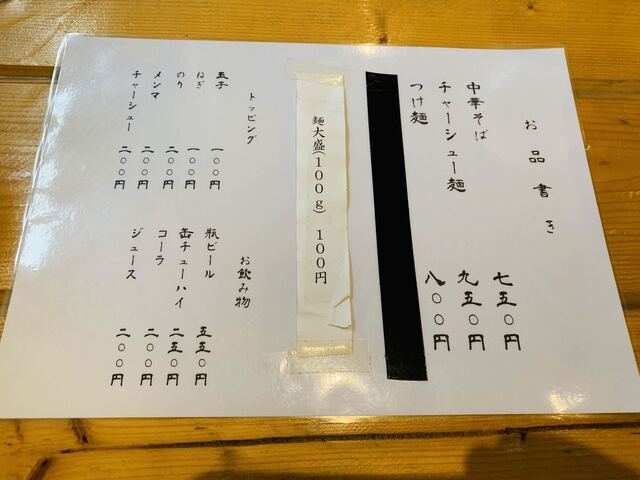 お品書き
中華そば 七五〇円
チャーシュー麺 九五〇円
つけ麺 八〇〇円
麺大盛(100g) 100円
トッピング
玉子 一〇〇円
ねぎ 一〇〇円
のり 二〇〇円
メンマ 二〇〇円
チャーシュー 二〇〇円
お飲み物
瓶ビール 五五〇円
缶チューハイ 二五〇円
コーラ 二〇〇円
ジュース 二〇〇円